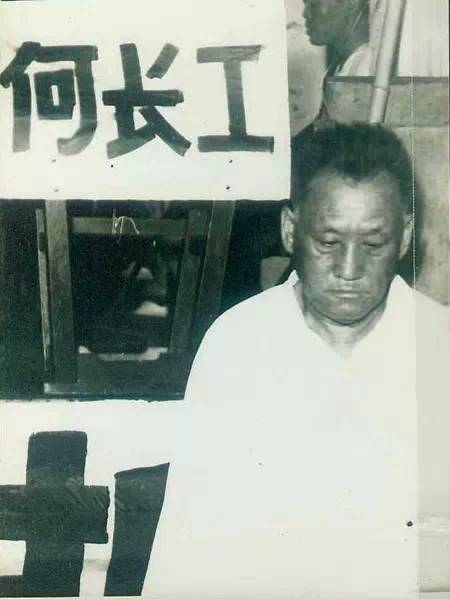 何长工